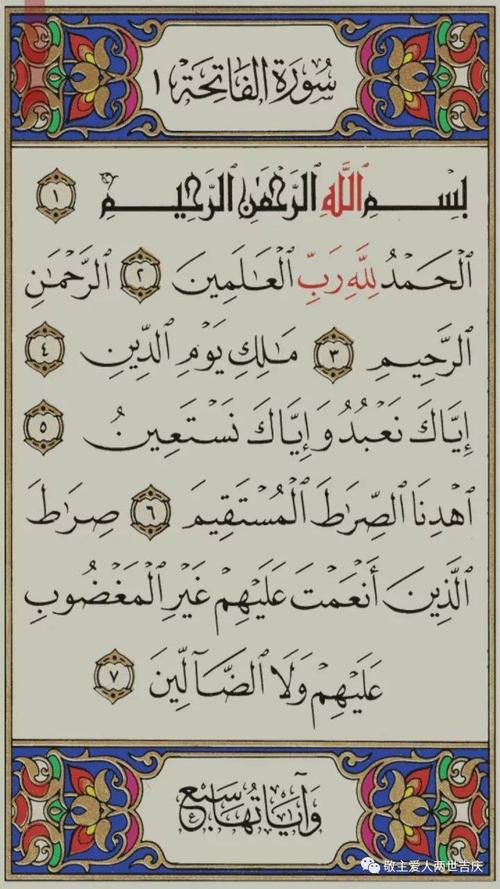 سُورَةُ الْفَاتِحَةِ ١
بِسْمِ ٱللَّهِ ٱلرَّحْمَٰنِ ٱلرَّحِيمِ ١
ٱلْحَمْدُ لِلَّهِ رَبِّ ٱلْعَٰلَمِينَ ٢ ٱلرَّحْمَٰنِ
ٱلرَّحِيمِ ٣ مَٰلِكِ يَوْمِ ٱلدِّينِ ٤
إِيَّاكَ نَعْبُدُ وَإِيَّاكَ نَسْتَعِينُ ٥
ٱهْدِنَا ٱلصِّرَٰطَ ٱلْمُسْتَقِيمَ ٦ صِرَٰطَ
ٱلَّذِينَ أَنْعَمْتَ عَلَيْهِمْ غَيْرِ ٱلْمَغْضُوبِ
عَلَيْهِمْ وَلَا ٱلضَّآلِّينَ ٧
وَآيَاتُهَا سَبْعٌ
敬主爱人两世吉庆